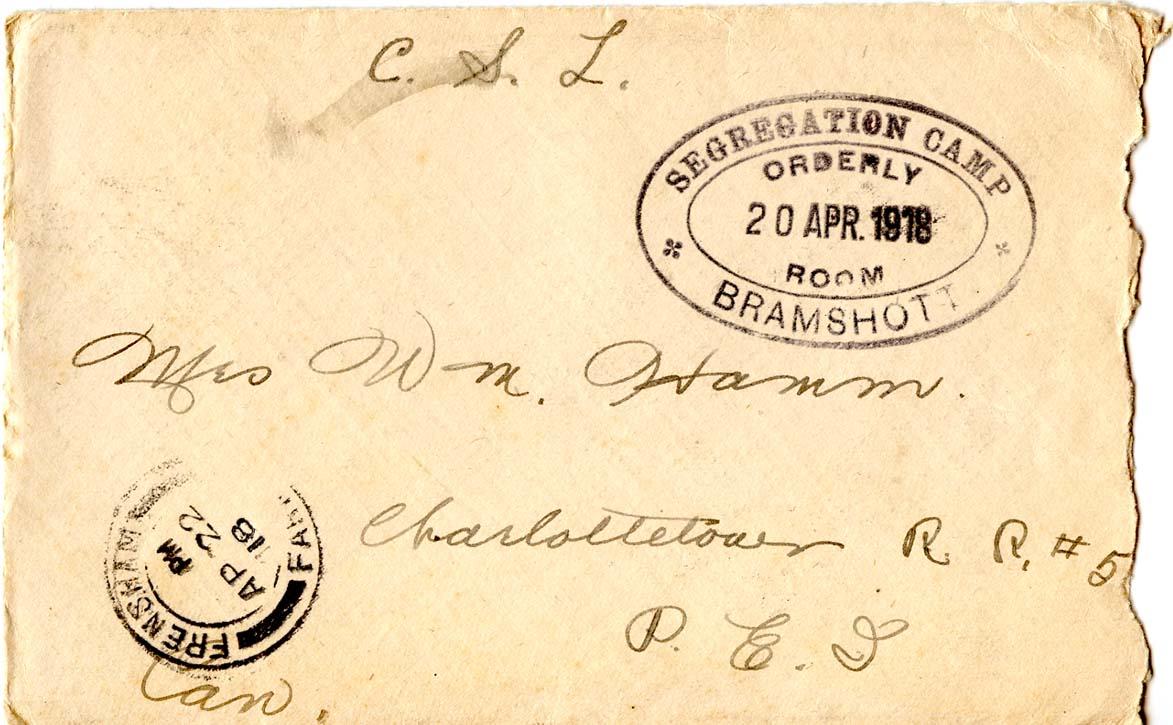 C. S. L.
SEGREGATION CAMP
ORDERLY
20 APR. 1918
ROOM
BRAMSHOTT
Mrs Wm. Hamm.
Charlottetown R. R. # 5
P. E. I
Can.
FRENSHAM
PM
AP 22
18